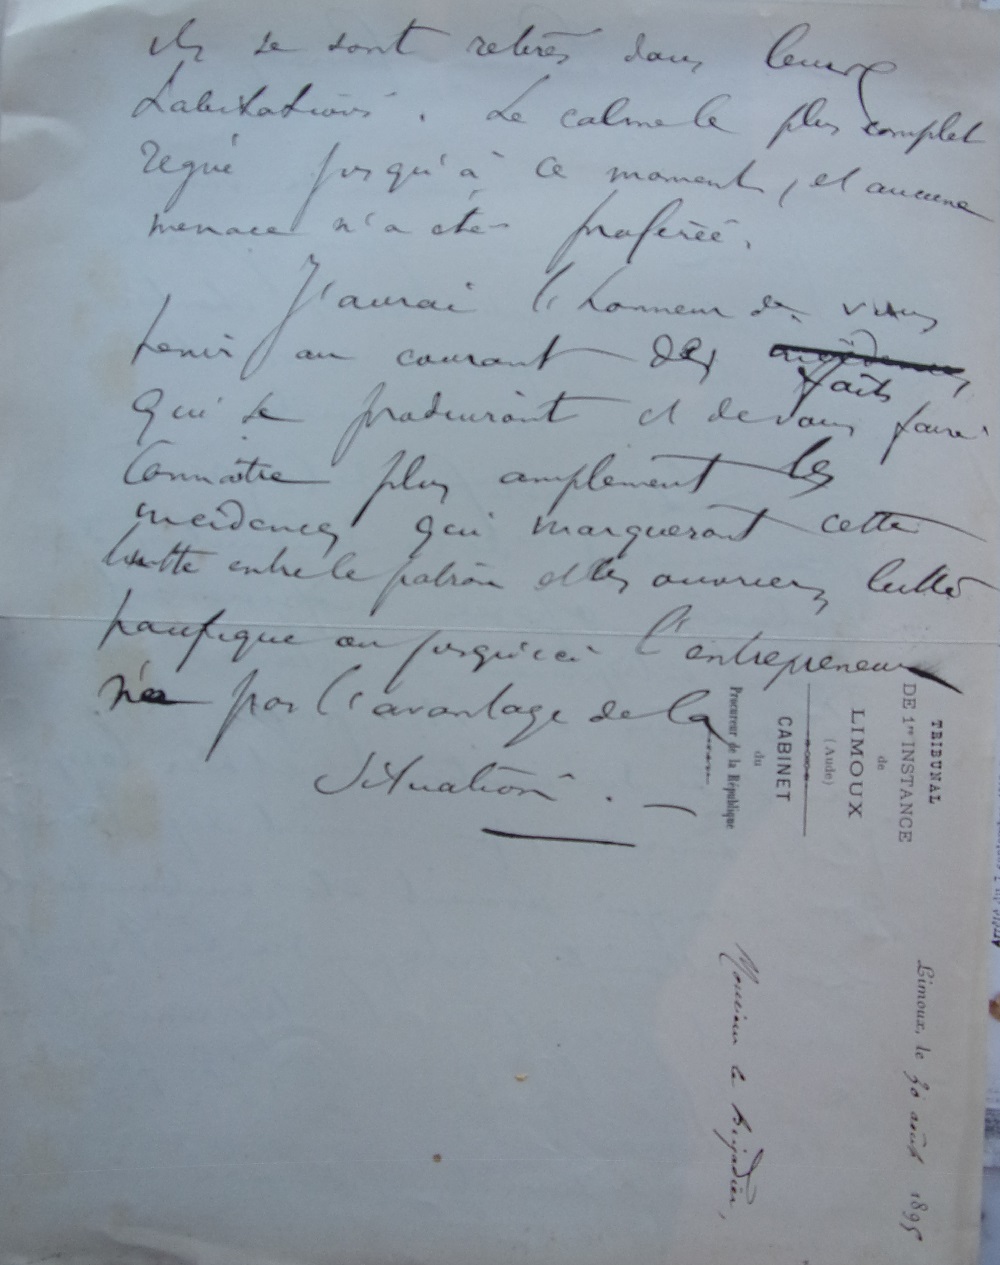 ils se sont retirés dans leurs
habitations. Le calme le plus complet
regne jusqu'à ce moment, et aucune
menace n'a étés proférée.
J'aurai l'honneur de vous
tenir au courant des
faits
qui se produiront et de vous faire
Connaître plus amplement les
incidences qui marqueront cette
lutte entre le patron et les ouvriers lutte
pacifique ou jusqu'ici l'entrepreneur
n'a pas l'avantage de la
Situation. —
TRIBUNAL
DE 1re INSTANCE
de
LIMOUX
(Aude)
CABINET
du
Procureur de la République
Limoux, le 30 août 1895
Monsieur le Brigadier,